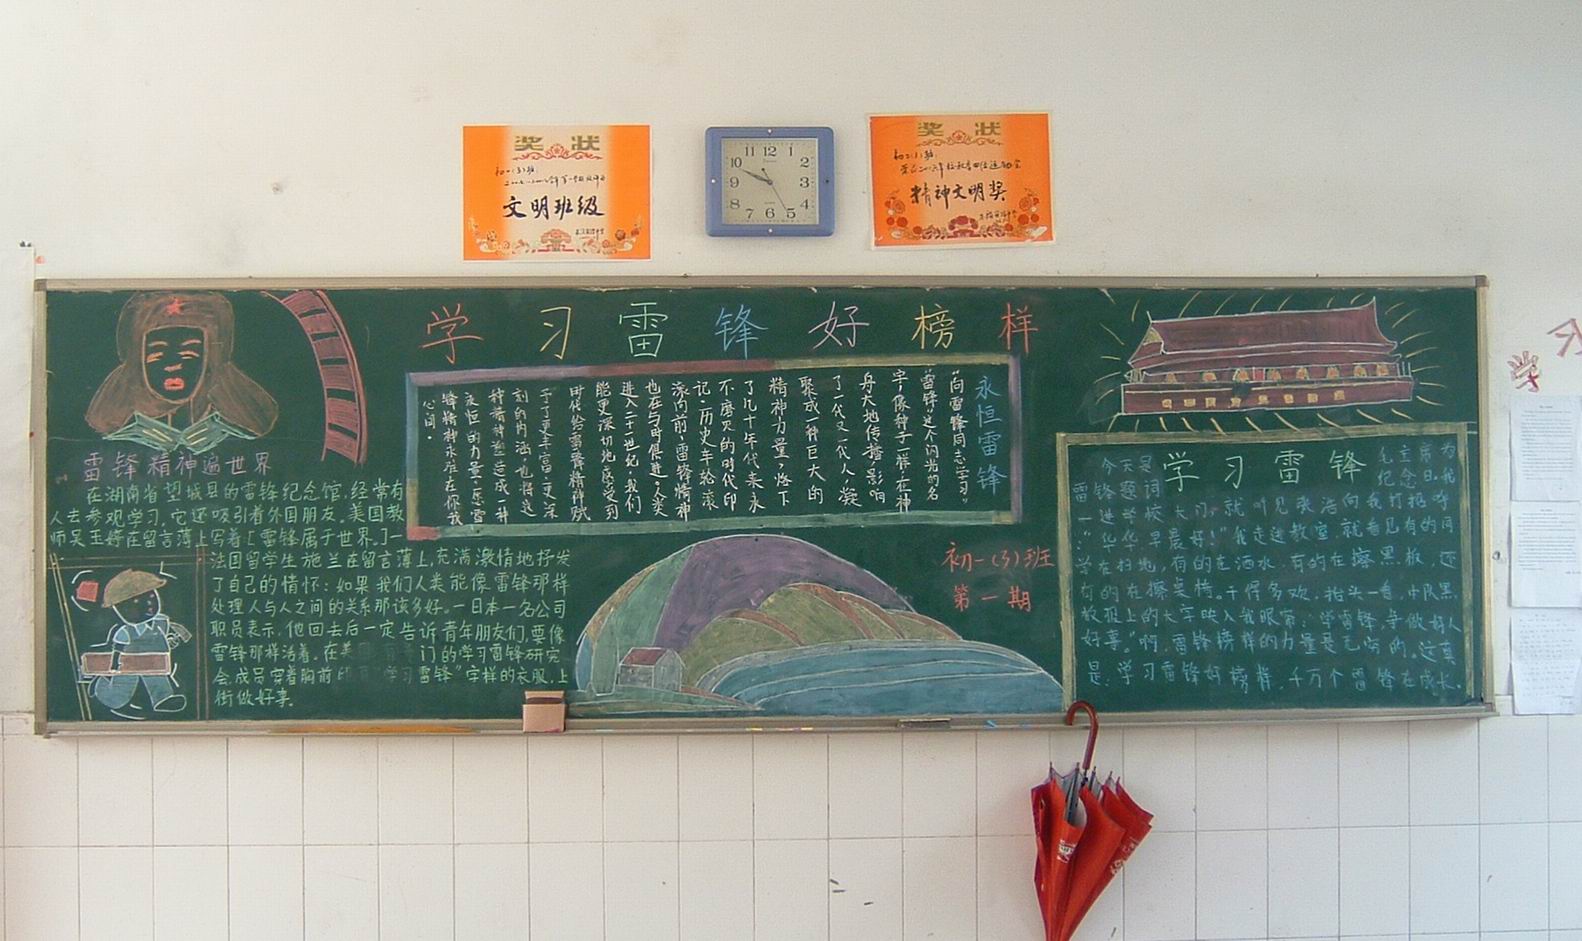 奖状
初一(3)班:
文明班级
11 12 1
10 2
9 3
8 4
7 6 5
奖状
初二(3)班
精神文明奖
学习雷锋好榜样
雷锋精神遍世界
在湖南省望城县的雷锋纪念馆,经常有
人去参观学习,它还吸引着外国朋友。美国教
师吴玉婷在留言薄上写着[雷锋属于世界。]一
法国留学生施兰在留言薄上,充满激情地抒发
了自己的情怀:如果我们人类能像雷锋那样
处理人与人之间的关系那该多好。一日本一名公司
职员表示,他回去后一定告诉青年朋友们,要像
雷锋那样活着。在美 门的学习雷锋研究
会,成员穿着胸前印 "学习雷锋"字样的衣服,上
街做好事。
永恒雷锋
"向雷锋同志学习"
"雷锋"这个闪光的名
字,像种子一样,在神
舟大地传播,影响
了一代又一代人,凝
聚成一种巨大的
精神力量,落下
了几十年代来永
不磨灭的时代印
记。历史车轮滚
滚向前,雷锋精神
也在与时俱进。人类
进入二十一世纪,我们
能更深切地感受到
时代给雷锋精神赋
予了更丰富、更深
刻的内涵,也将这
种精神塑造成一种
永恒的力量。愿雷
锋精神永驻在你我
心间。
初一(3)班
第一期
学习雷锋
今天是毛主席为
雷锋题词纪念日。我
一进学校大门,就听见张浩向我打招呼
:"华华,早晨好!"我走进教室,就看见有的同
学在扫地,有的在洒水,有的在擦黑板,还
有的在擦桌椅。干得多欢,抬头一看,中队黑
板报上的大字映入我眼帘:"学雷锋,争做好人
好事。"啊,雷锋榜样的力量是无穷的。这真
是:学习雷锋好榜样,千万个雷锋在成长。
学